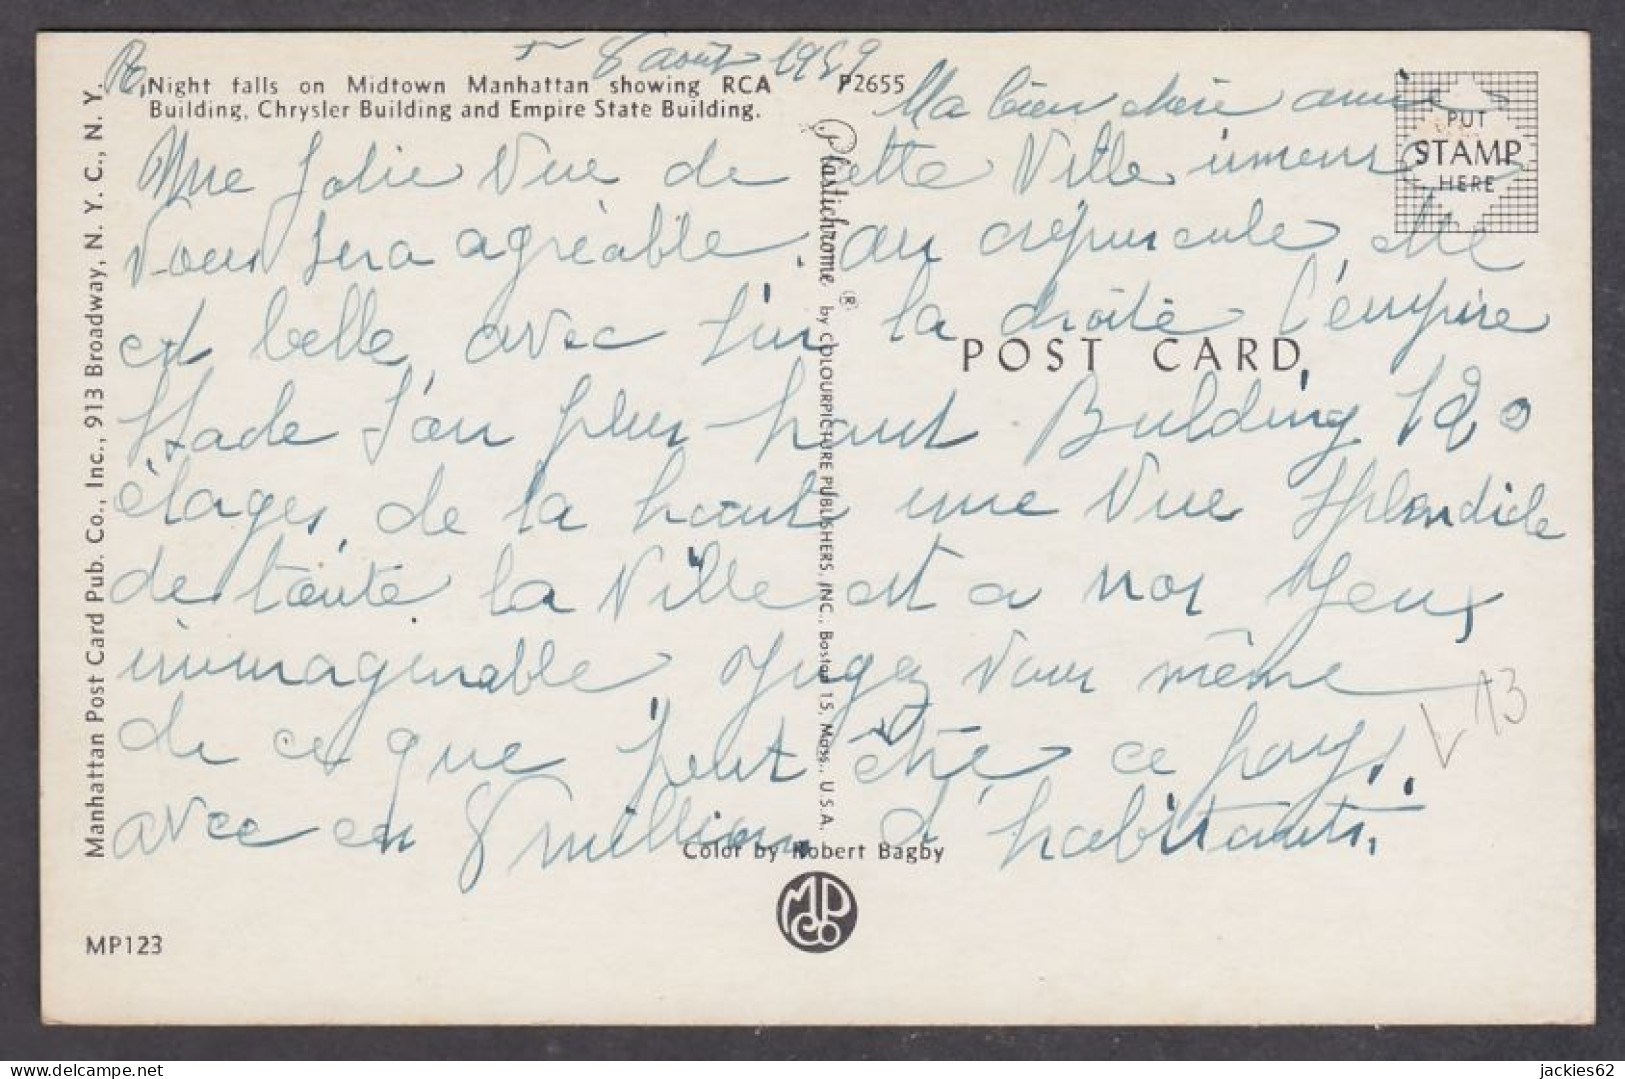 8 août 1959
Night falls on Midtown Manhattan showing RCA
Building, Chrysler Building and Empire State Building.
P2655
Ma bien chère amie
PUT
STAMP
HERE
Une Jolie Vue de cette Ville immense
Vous sera agréable. au crépuscule, elle
est belle, avec sur la droite l'empire
Stade s'on plus haut Bulding 120
étages, de la haut une Vue Splendide
de toute la Ville est a nos yeux,
immaginable, Jugez Vous même
de ce que peut être ce pays.
avec en 8 millions d'habitants.
Plastichrome ® by COLOURPICTURE PUBLISHERS, INC., Boston 15, Mass., U.S.A.
POST CARD
Manhattan Post Card Pub. Co., Inc., 913 Broadway, N. Y. C., N. Y.
13
Color by Robert Bagby
MPCo
MP123
jackies62